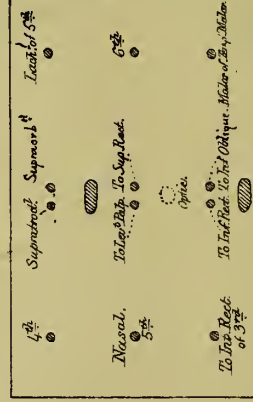 4th
Supratrochl Supraorbl
Lachl of 5th
Nasal.
5th
To Levr Palp. To Sup. Rect.
6th
Optic.
To Int. Rect.
of 3rd
To Inf. Rect. To Inf Oblique.
Malar